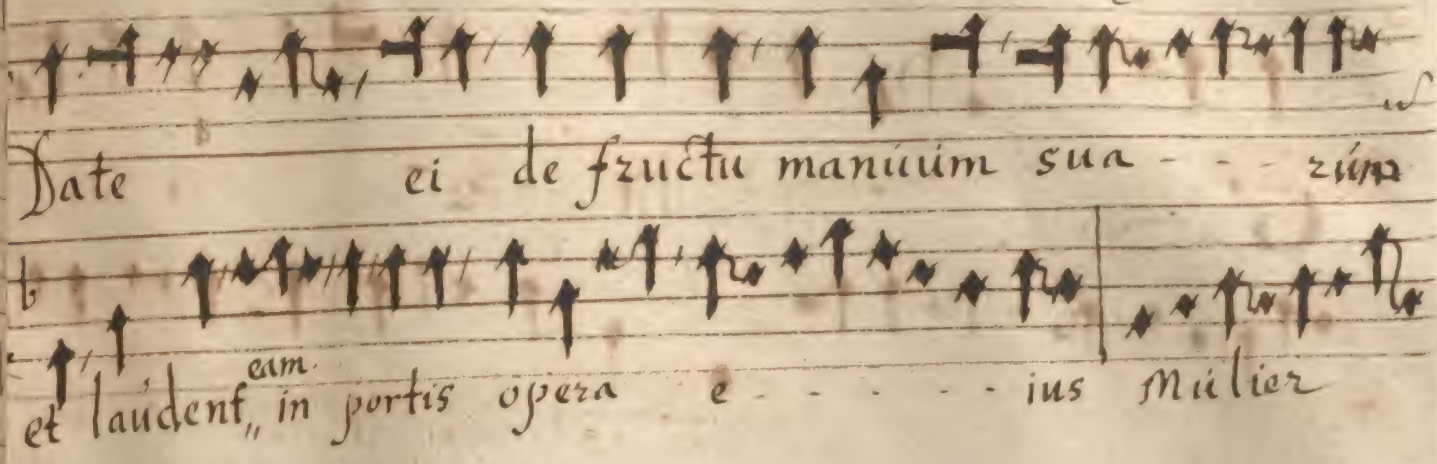 Date ei de fructu manuum sua - - - rum
eam.
et laudent,, in portis opera e - - - - - ius Mulier